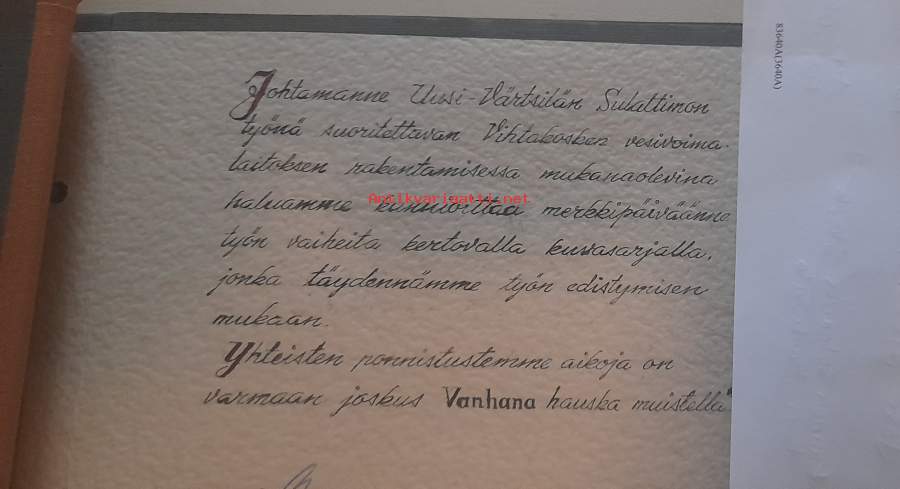 Johtamanne Uusi-Värtsilän Sulattimon
työnä suoritettavan Vihtakosken vesivoima-
laitoksen rakentamisessa mukanaolevina
haluamme kunnioittaa merkkipäiväänne
työn vaiheita kertovalla kuvasarjalla,
jonka täydennämme työn edistymisen
mukaan.
Yhteisten ponnistustemme aikoja on
varmaan joskus Vanhana hauska muistella"
Antikvariaatti.net
83640A(3640A)